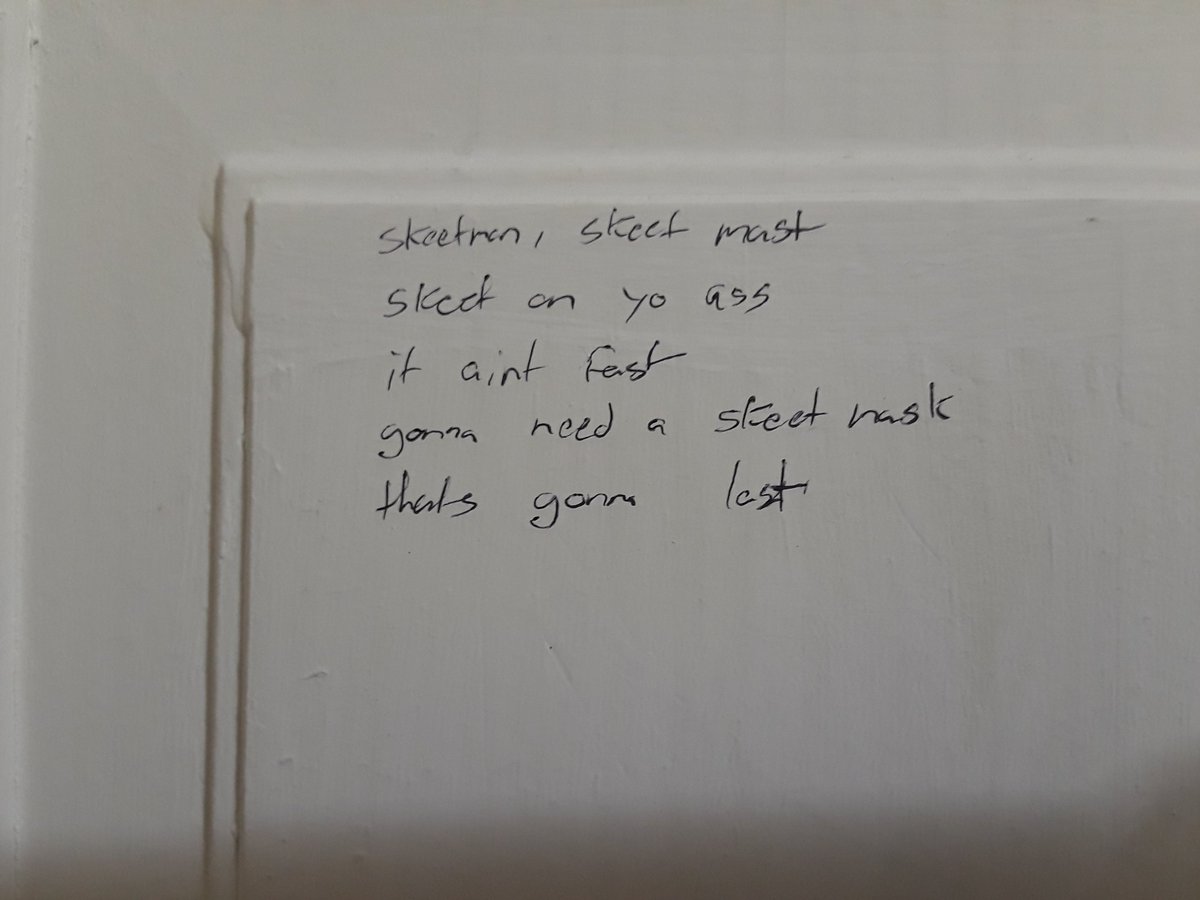 skeetman, skeet mast
skeet on yo ass
it aint fast
gonna need a skeet mask
thats gonna last